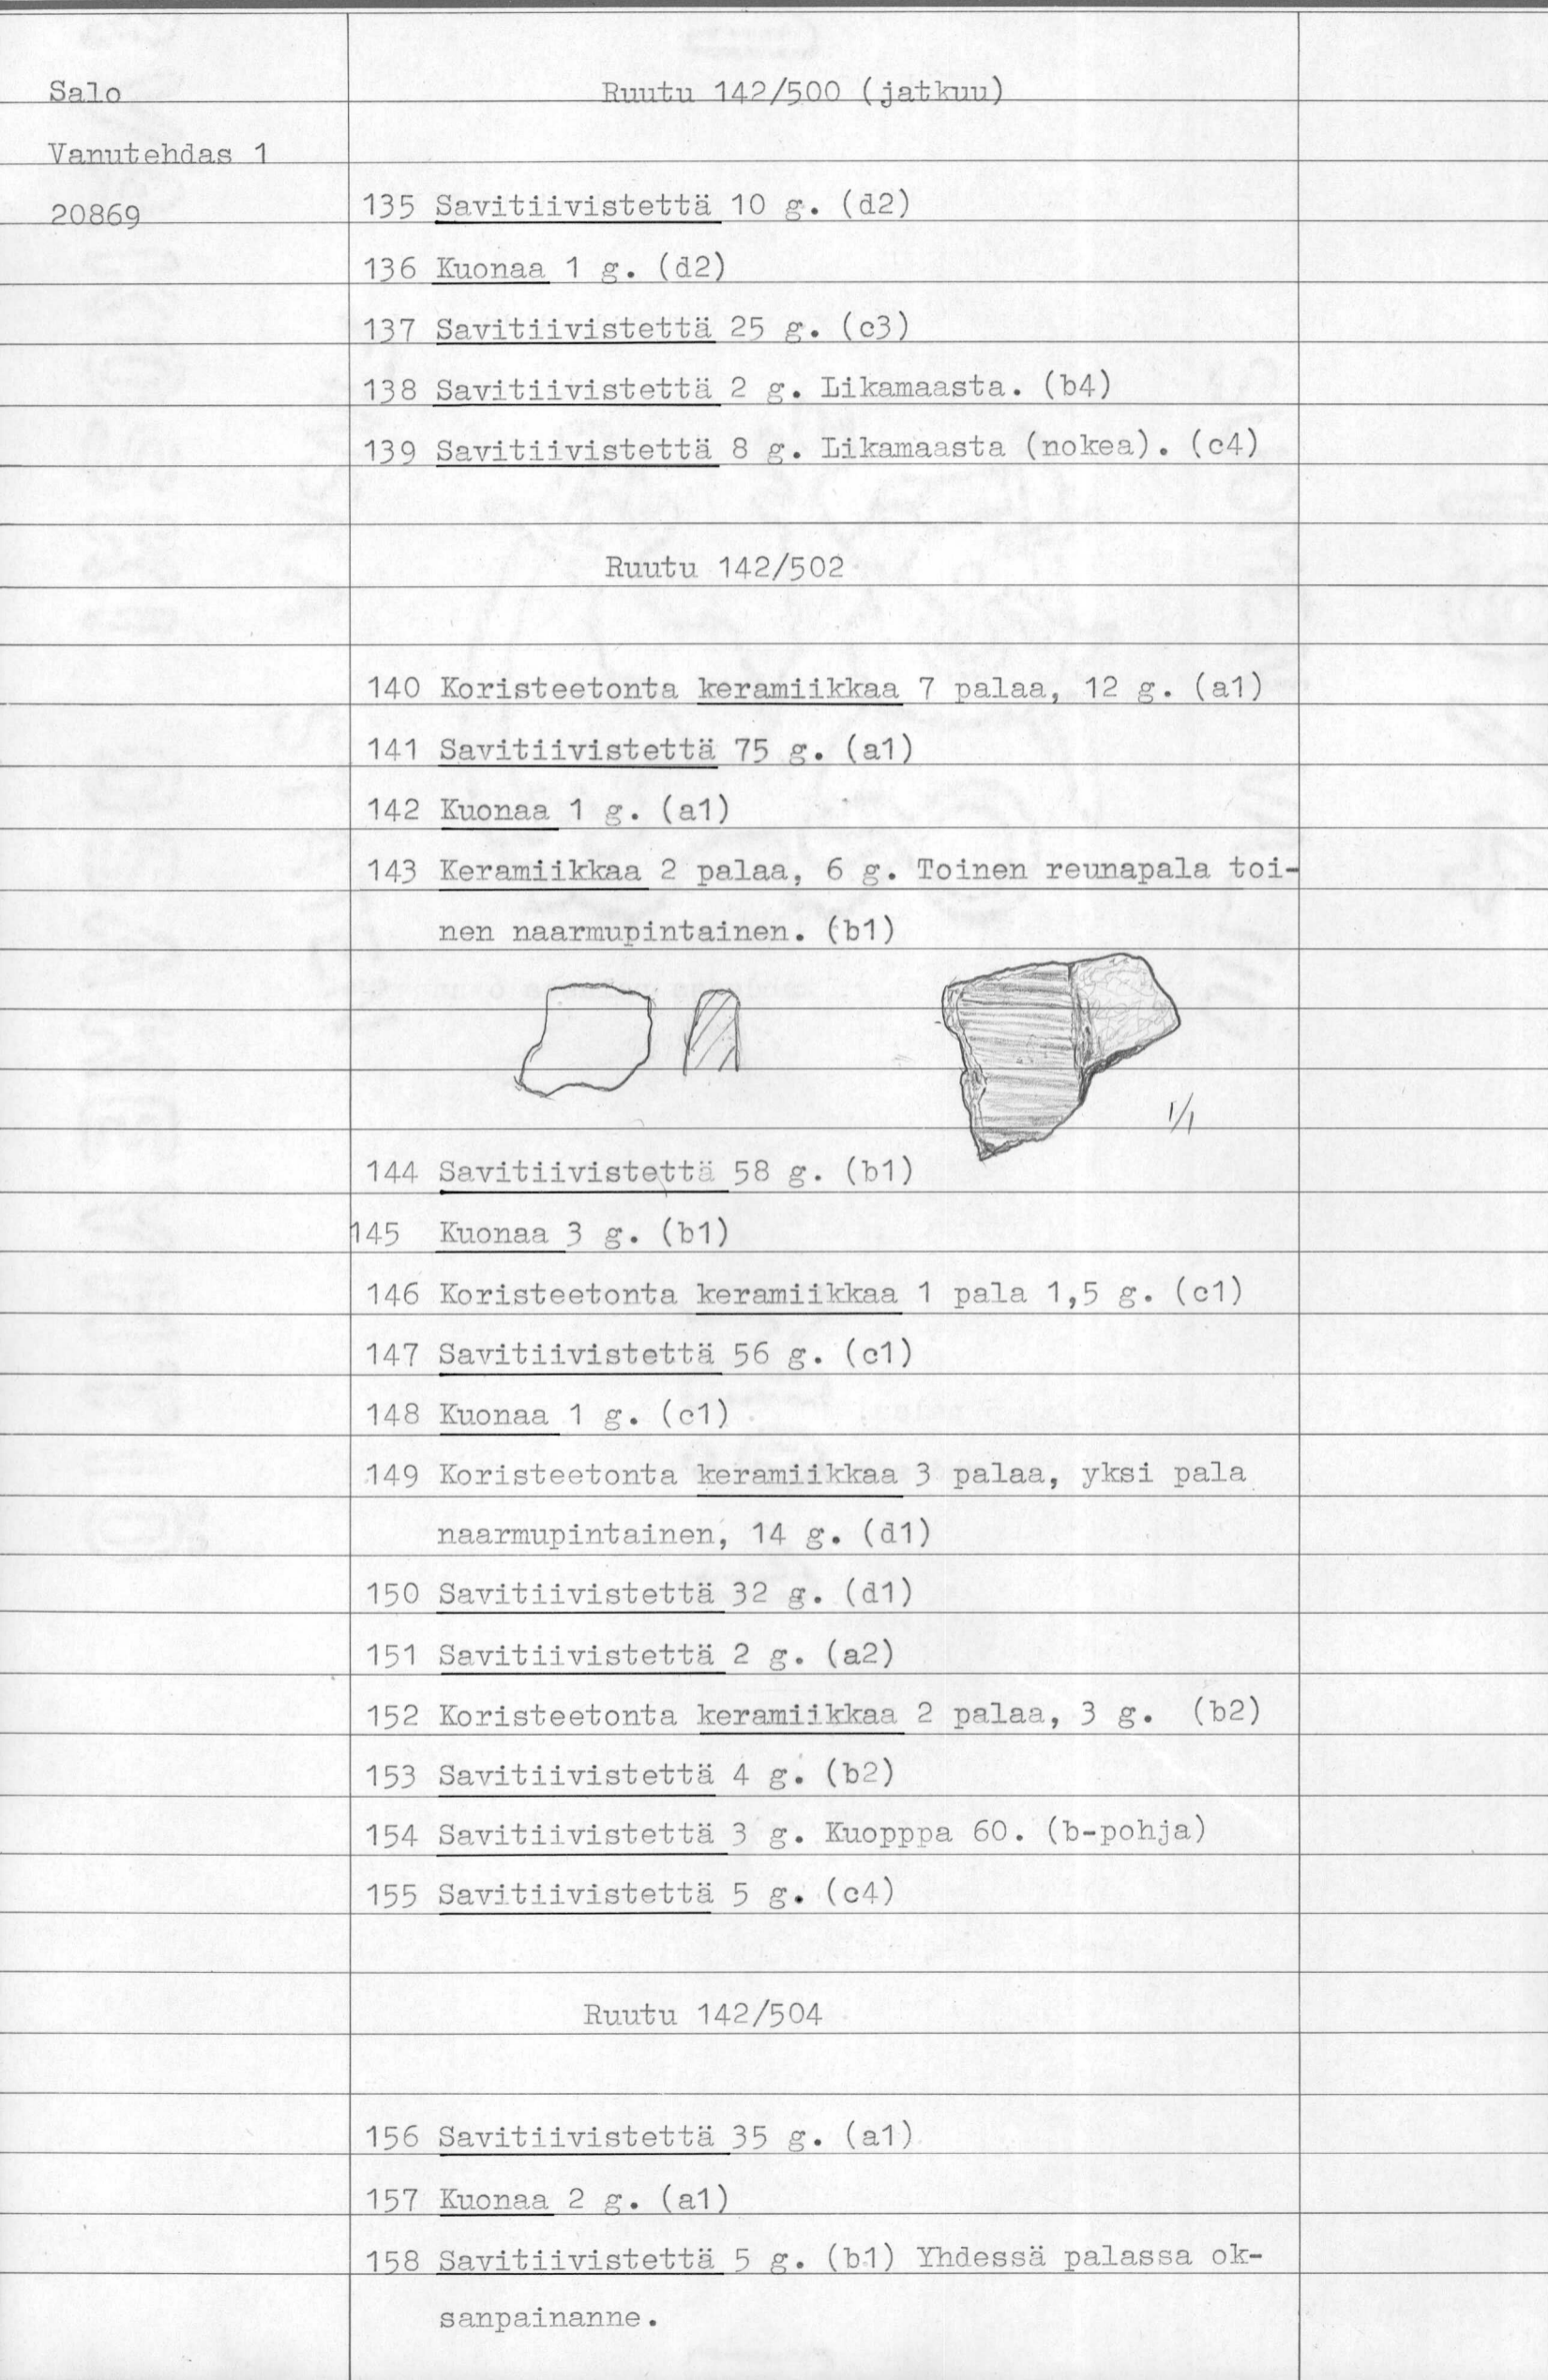 Salo
Ruutu 142/500 (jatkuu)
Vanutehdas 1
20869
135 Savitiivistettä 10 g. (d2)
136 Kuonaa 1 g. (d2)
137 Savitiivistettä 25 g. (c3)
138 Savitiivistettä 2 g. Likamaasta. (b4)
139 Savitiivistettä 8 g. Likamaasta (nokea). (c4)
Ruutu 142/502
140 Koristeetonta keramiikkaa 7 palaa, 12 g. (a1)
141 Savitiivistettä 75 g. (a1)
142 Kuonaa 1 g. (a1)
143 Keramiikkaa 2 palaa, 6 g. Toinen reunapala toi-
nen naarmupintainen. (b1)
1/1
144 Savitiivistettä 58 g. (b1)
145 Kuonaa 3 g. (b1)
146 Koristeetonta keramiikkaa 1 pala 1,5 g. (c1)
147 Savitiivistettä 56 g. (c1)
148 Kuonaa 1 g. (c1)
149 Koristeetonta keramiikkaa 3 palaa, yksi pala
naarmupintainen, 14 g. (d1)
150 Savitiivistettä 32 g. (d1)
151 Savitiivistettä 2 g. (a2)
152 Koristeetonta keramiikkaa 2 palaa, 3 g. (b2)
153 Savitiivistettä 4 g. (b2)
154 Savitiivistettä 3 g. Kuopppa 60. (b-pohja)
155 Savitiivistettä 5 g. (c4)
Ruutu 142/504
156 Savitiivistettä 35 g. (a1)
157 Kuonaa 2 g. (a1)
158 Savitiivistettä 5 g. (b1) Yhdessä palassa ok-
sanpainanne.